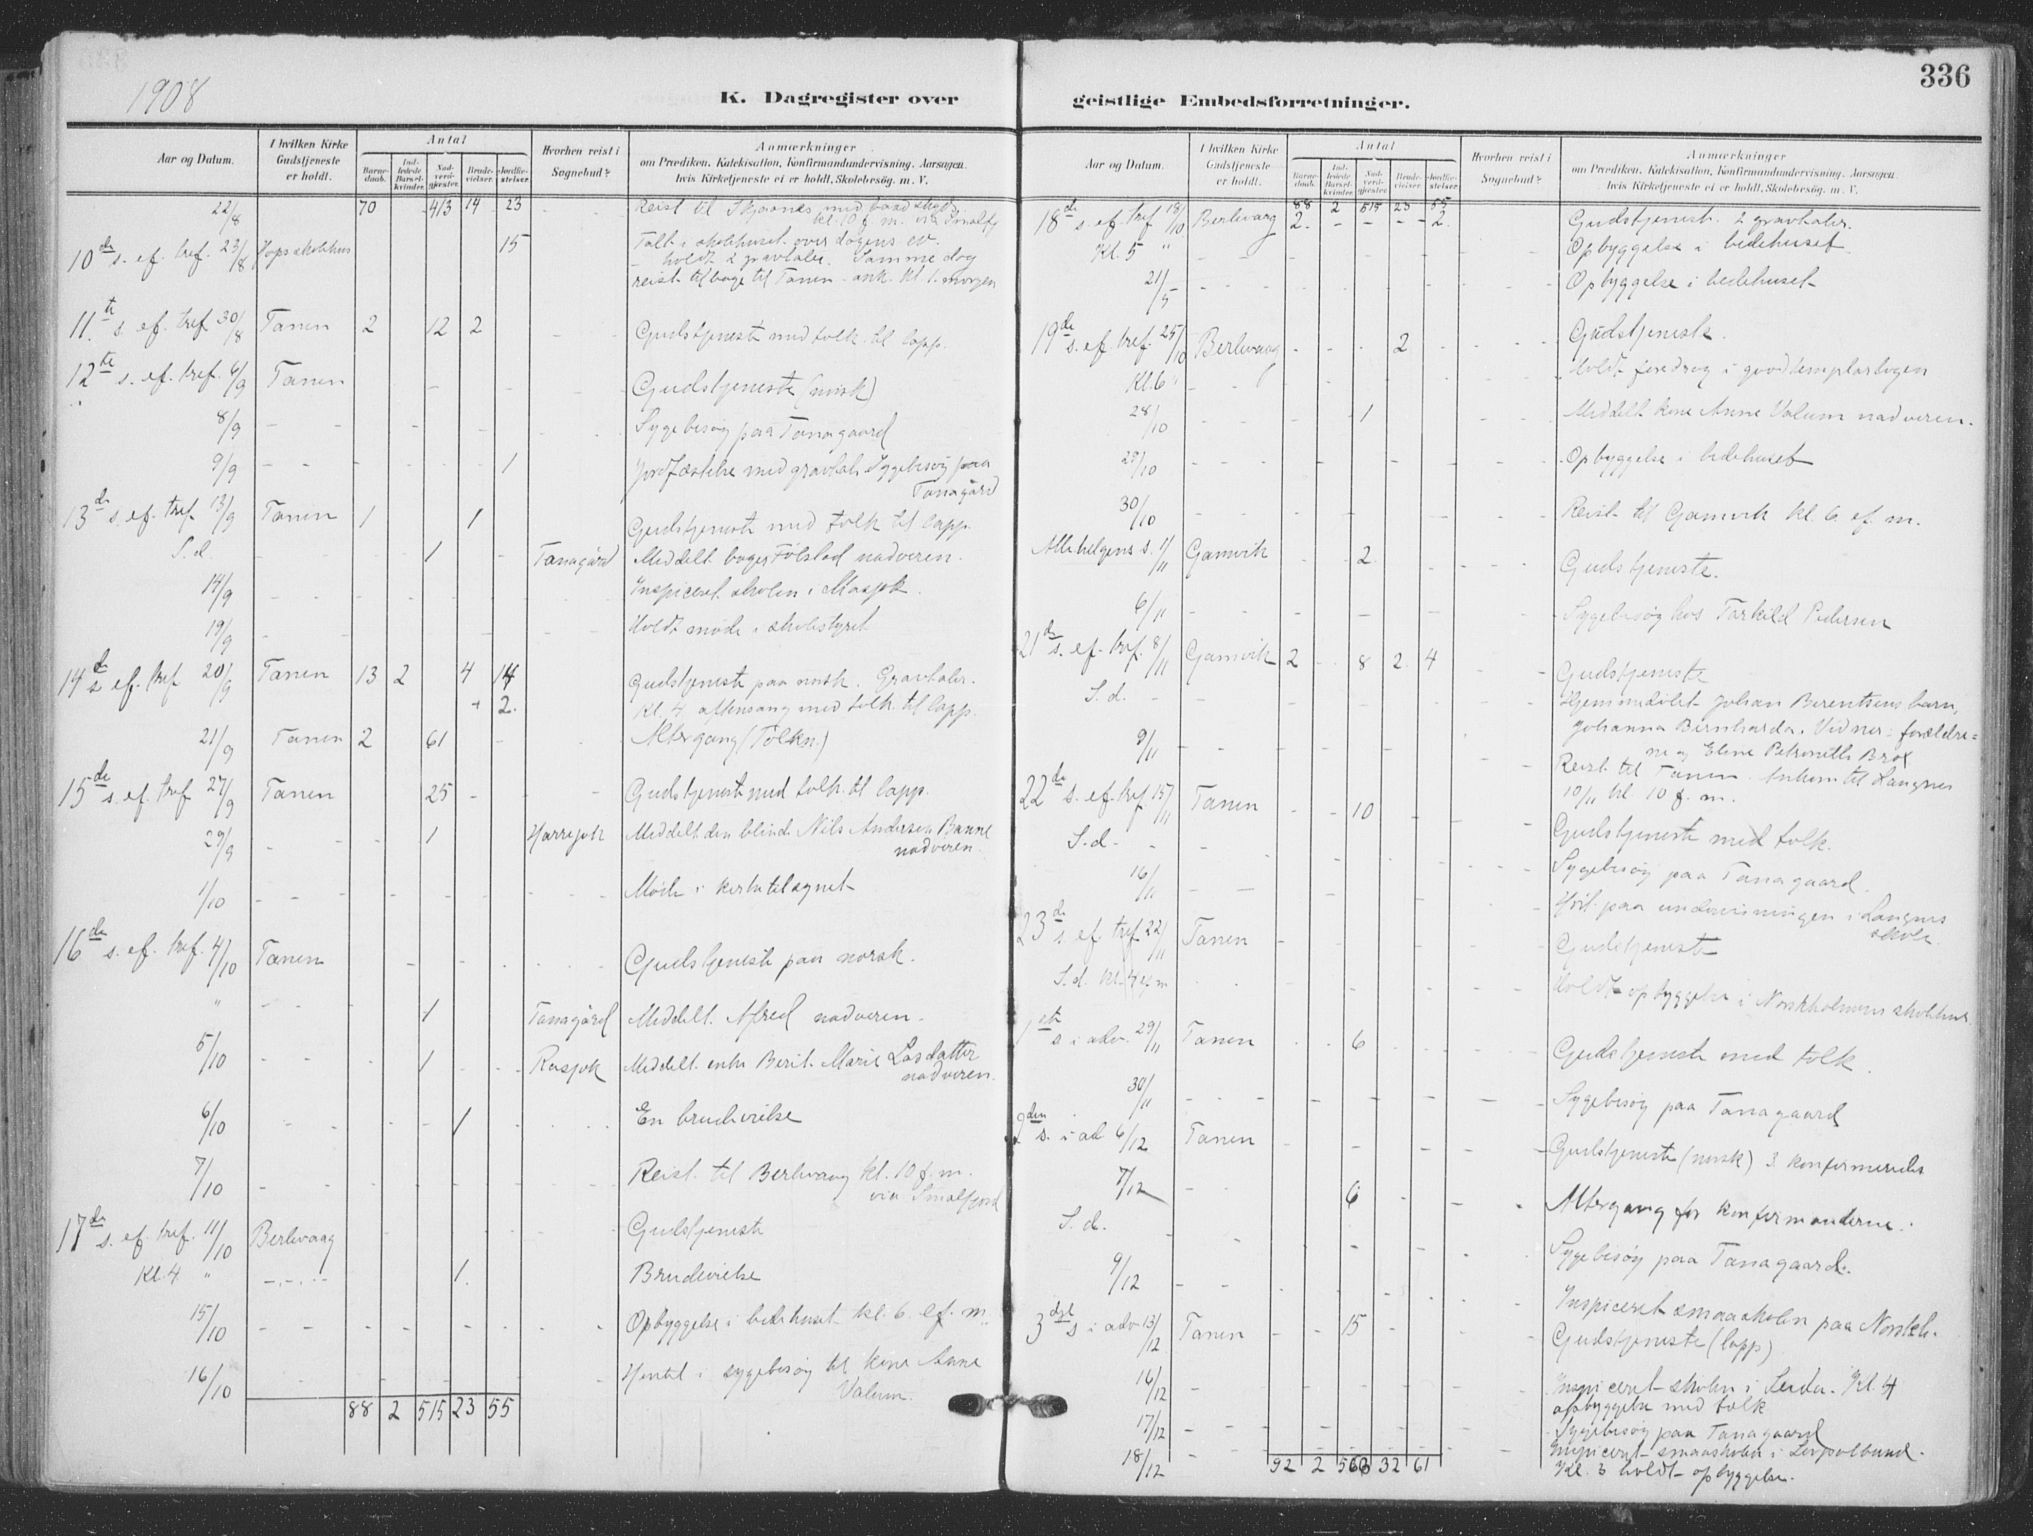 1908
336
K. Dagregister over geistlige Embedsforretninger.
Aar og Datum. I hvilken Kirke Gudstjeneste er holdt. Antal Barnedaab. Indledede Barselkvinder. Nadverdgjester. Brudevielser. Jordfæstelser. Hvorhen reist i Sognebud? Anmærkninger om Prædiken, Katekisation, Konfirmandundervisning, Aarsagen, hvis Kirketjeneste ei er holdt, Skolebesøg. m. V.
22/8 70 413 19 23 Reist til Skjaanes med baad
kl. 10 f. m. via Smalfj.
10de s. ef. tref. 23/8 Hops skolehus 15 Talt i skolehuset over dagens ev.
holdt 2 gravtaler. Samme dag
reist tilbage til Tanen - ank. kl. 1 morgen
11te s. ef. tref 30/8 Tanen 2 12 2 Gudstjeneste med tolk til lapp.
12te s. ef. tref. 6/9 Tanen - - Gudstjeneste (norsk)
8/9 - - Sygebesøg paa Tanagaard
9/9 - - 1 Jordfæstelse med gravtale Sygebesøg paa
Tanagård
13de s. ef. tref 13/9 Tanen 1 1 Gudstjeneste med tolk til lapp.
S. d. - - 1 Tanagård Meddelt Følstad nadveren.
14/9 - - Inspiceret skolen i Masjok.
19/9 - - Holdt møde i skolestyret
14de s ef. tref 20/9 Tanen 13 2 4 14 Gudstjeneste paa norsk. Gravtaler.
+ 2. Kl. 4 aftensang med tolk til lapp.
21/9 Tanen 2 61 - Altergang (Tolkn.)
15de s. ef. tref 27/9 Tanen 25 - Gudstjeneste med tolk til lapp.
29/9 - - 1 Harrejok Meddelt den blinde Nils Andersen Banne
nadveren.
1/10 - - Møde i kirketilsynet
16de s. ef. tref. 4/10 Tanen - - Gudstjeneste paa norsk.
" - - 1 Tanagård Meddelt Alfred nadveren.
5/10 - - 1 Meddelt enke Berit Marie Lasdatter
nadveren.
6/10 - - 1 En brudevielse
7/10 - - Reist til Berlevaag kl. 10 f. m.
via Smalfjord
17de s. ef. tref. 11/10 Berlevaag - - Gudstjeneste
Kl. 4 " - - 1. Brudevielse
15/10 - - Opbyggelse i bedehuset kl. 6 ef. m.
16/10 - - Hentet i sygebesøg til kone Anne
Valum.
88 2 515 23 55
Aar og Datum. I hvilken Kirke Gudstjeneste er holdt. Antal Barnedaab. Indledede Barselkvinder. Nadverdgjester. Brudevielser. Jordfæstelser. Hvorhen reist i Sognebud? Anmærkninger om Prædiken, Katekisation, Konfirmandundervisning, Aarsagen, hvis Kirketjeneste ei er holdt, Skolebesøg. m. V.
88 2 515 23 55
18de s. ef. tref 18/10 Berlevaag 2. - - - 2. Gudstjeneste. 2 gravtaler.
Kl. 5 " Opbyggelse i bedehuset
21/5 - - Opbyggelse i bedehuset
19de s. ef. tref. 25/10 Berlevaag - - - 2 Gudstjeneste.
Kl. 6 " - - Holdt foredrag i goodtemplarlogen
28/10 1 Meddelt kone Anne Valum nadveren.
29/10 - - Opbyggelse i bedehuset
30/10 - - Reist til Gamvik kl. 6 ef. m.
Allehelgens s. 1/11 Gamvik - - 2 Gudstjeneste.
6/11 - - Sygebesøg hos Tarkild Pedersen
21de s. ef. tref. 8/11 Gamvik 2 - 8 2 4 Gudstjeneste
S. d. - - Hjemmedøbt Johan Berentsens barn,
Johanna Bernharda. Vidner: forældre=
ne og Eline Brox
9/11 - - Reist til Tanen. Ankom til Langnes
10/11 kl. 10 f. m.
22de s. ef. tref 15/11 Tanen - - 10 Gudstjeneste med tolk.
S. d. - - Sygebesøg paa Tanagaard.
16/11 - - Hørt paa undervisningen i Langnes
skole.
23de s. ef. tref 22/11 Tanen - - Gudstjeneste
S. d. kl. 4 ef. m - - Holdt opbyggelse i Norskholmens skolehus
1ste s i adv. 29/11 Tanen - - 6 Gudstjeneste med tolk.
30/11 - - Sygebesøg paa Tanagaard
2den s. i ad 6/12 Tanen - - Gudstjeneste (norsk) 3 konfirmerede
7/12 - - 6 - Altergang for konfirmanderne.
S. d. - - Sygebesøg paa Tanagaard.
9/12 - - Inspiceret smaaskolen paa Norskh.
3die s i adv 13/12 Tanen - - 15 Gudstjeneste (lapp)
16/12 - Inspiceret skolen i Seida. Kl. 4
opbyggelse med tolk
17/12 - - Sygebesøg paa Tanagaard
18/12 - Inspiceret smaaskolen i
Kl. 3 holdt opbyggelse.
92 2 566 32 61